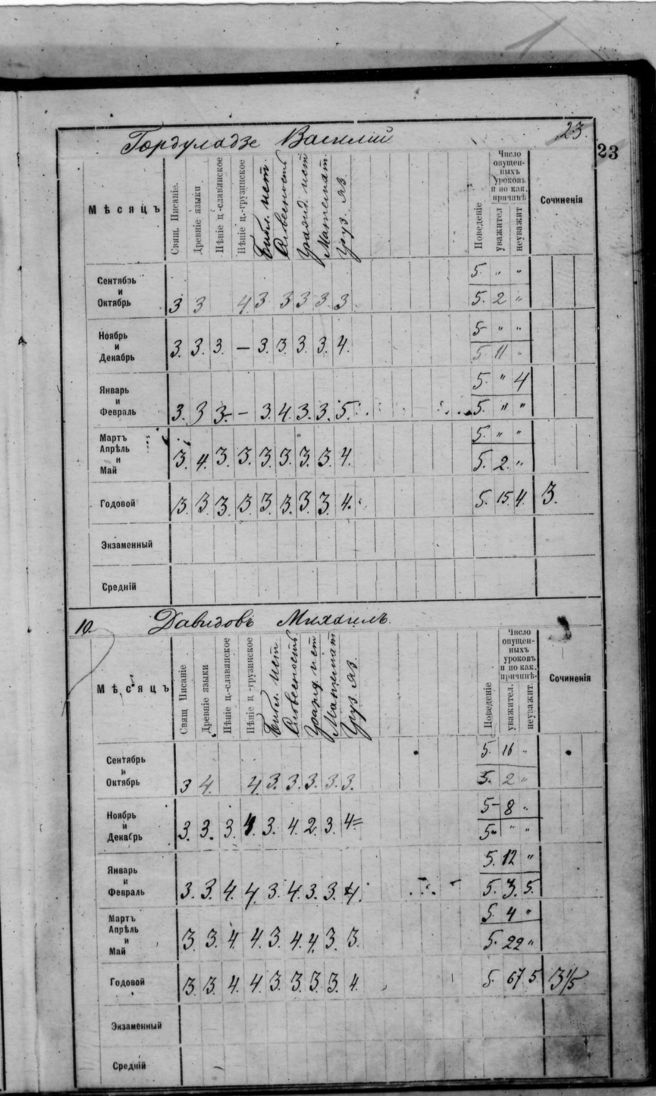 1
Гордуладзе Василий 23.
23
Мѣсяцъ Свящ. Писаніе. Древніе языки Пѣніе ц.-славянское Пѣніе ц.-грузинское Библ. ист. Словесность Гражд. ист Математ. Груз. яз. Поведеніе Число опущенныхъ уроковъ и по как. причинѣ уважител неуважит Сочиненія
Сентябрь 5. " "
и
Октябрь 3 3 4. 3. 3 3 3. 3 5. 2 "
Ноябрь 5- " "
и
Декабрь 3. 3. 3. — 3. 3. 3. 3. 4. 5 11 "
Январь 5. " 4
и
Февраль 3. 3 3. — 3. 4. 3. 3. 5. 5. " "
Мартъ 5. " "
Апрѣль
и
Май 3. 4. 3. 3. 3. 3. 3. 3. 4. 5. 2. "
Годовой 3. 3. 3. 3. 3. 3. 3. 3. 4. 5. 15. 4. 3.
Экзаменный
Средній
10. Давидовъ Михаилъ.
Мѣсяцъ Свящ Писаніе Древніе языки Пѣніе ц.-славянское Пѣніе ц.-грузинское Библ. ист. Словесность Гражд. ист Математ Груз. яз. Поведеніе Число опущенныхъ уроковъ и по как. причинѣ уважител. неуважит. Сочиненія
Сентябрь 5. 16 "
и
Октябрь 3 4. 4. 3. 3. 3. 3. 3. 5. 2 "
Ноябрь 5- 8 "
и
Декабрь 3. 3. 3. 4. 3. 4. 2. 3. 4= 5- " "
Январь 5. 12 "
и
Февраль 3. 3. 4. 4. 3. 4. 3. 3. 4. 5. 3. 5.
Мартъ 5. 4 "
Апрѣль
и
Май 3. 3. 4. 4. 3. 4. 4. 3. 3. 5. 22 "
Годовой 3. 3. 4. 4. 3. 3. 3. 3. 4. 5. 67 5 3 1/5
Экзаменный
Средній